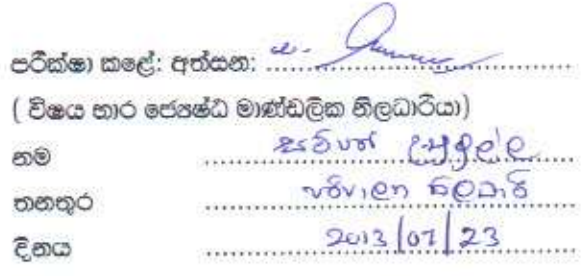 පරීක්ෂා කළේ: අත්සන: ....................
( විෂය භාර ජ්‍යෙෂ්ඨ මාණ්ඩලික නිලධාරියා)
නම ....................
තනතුර පරිපාලන නිලධාරි
දිනය 2013/07/23